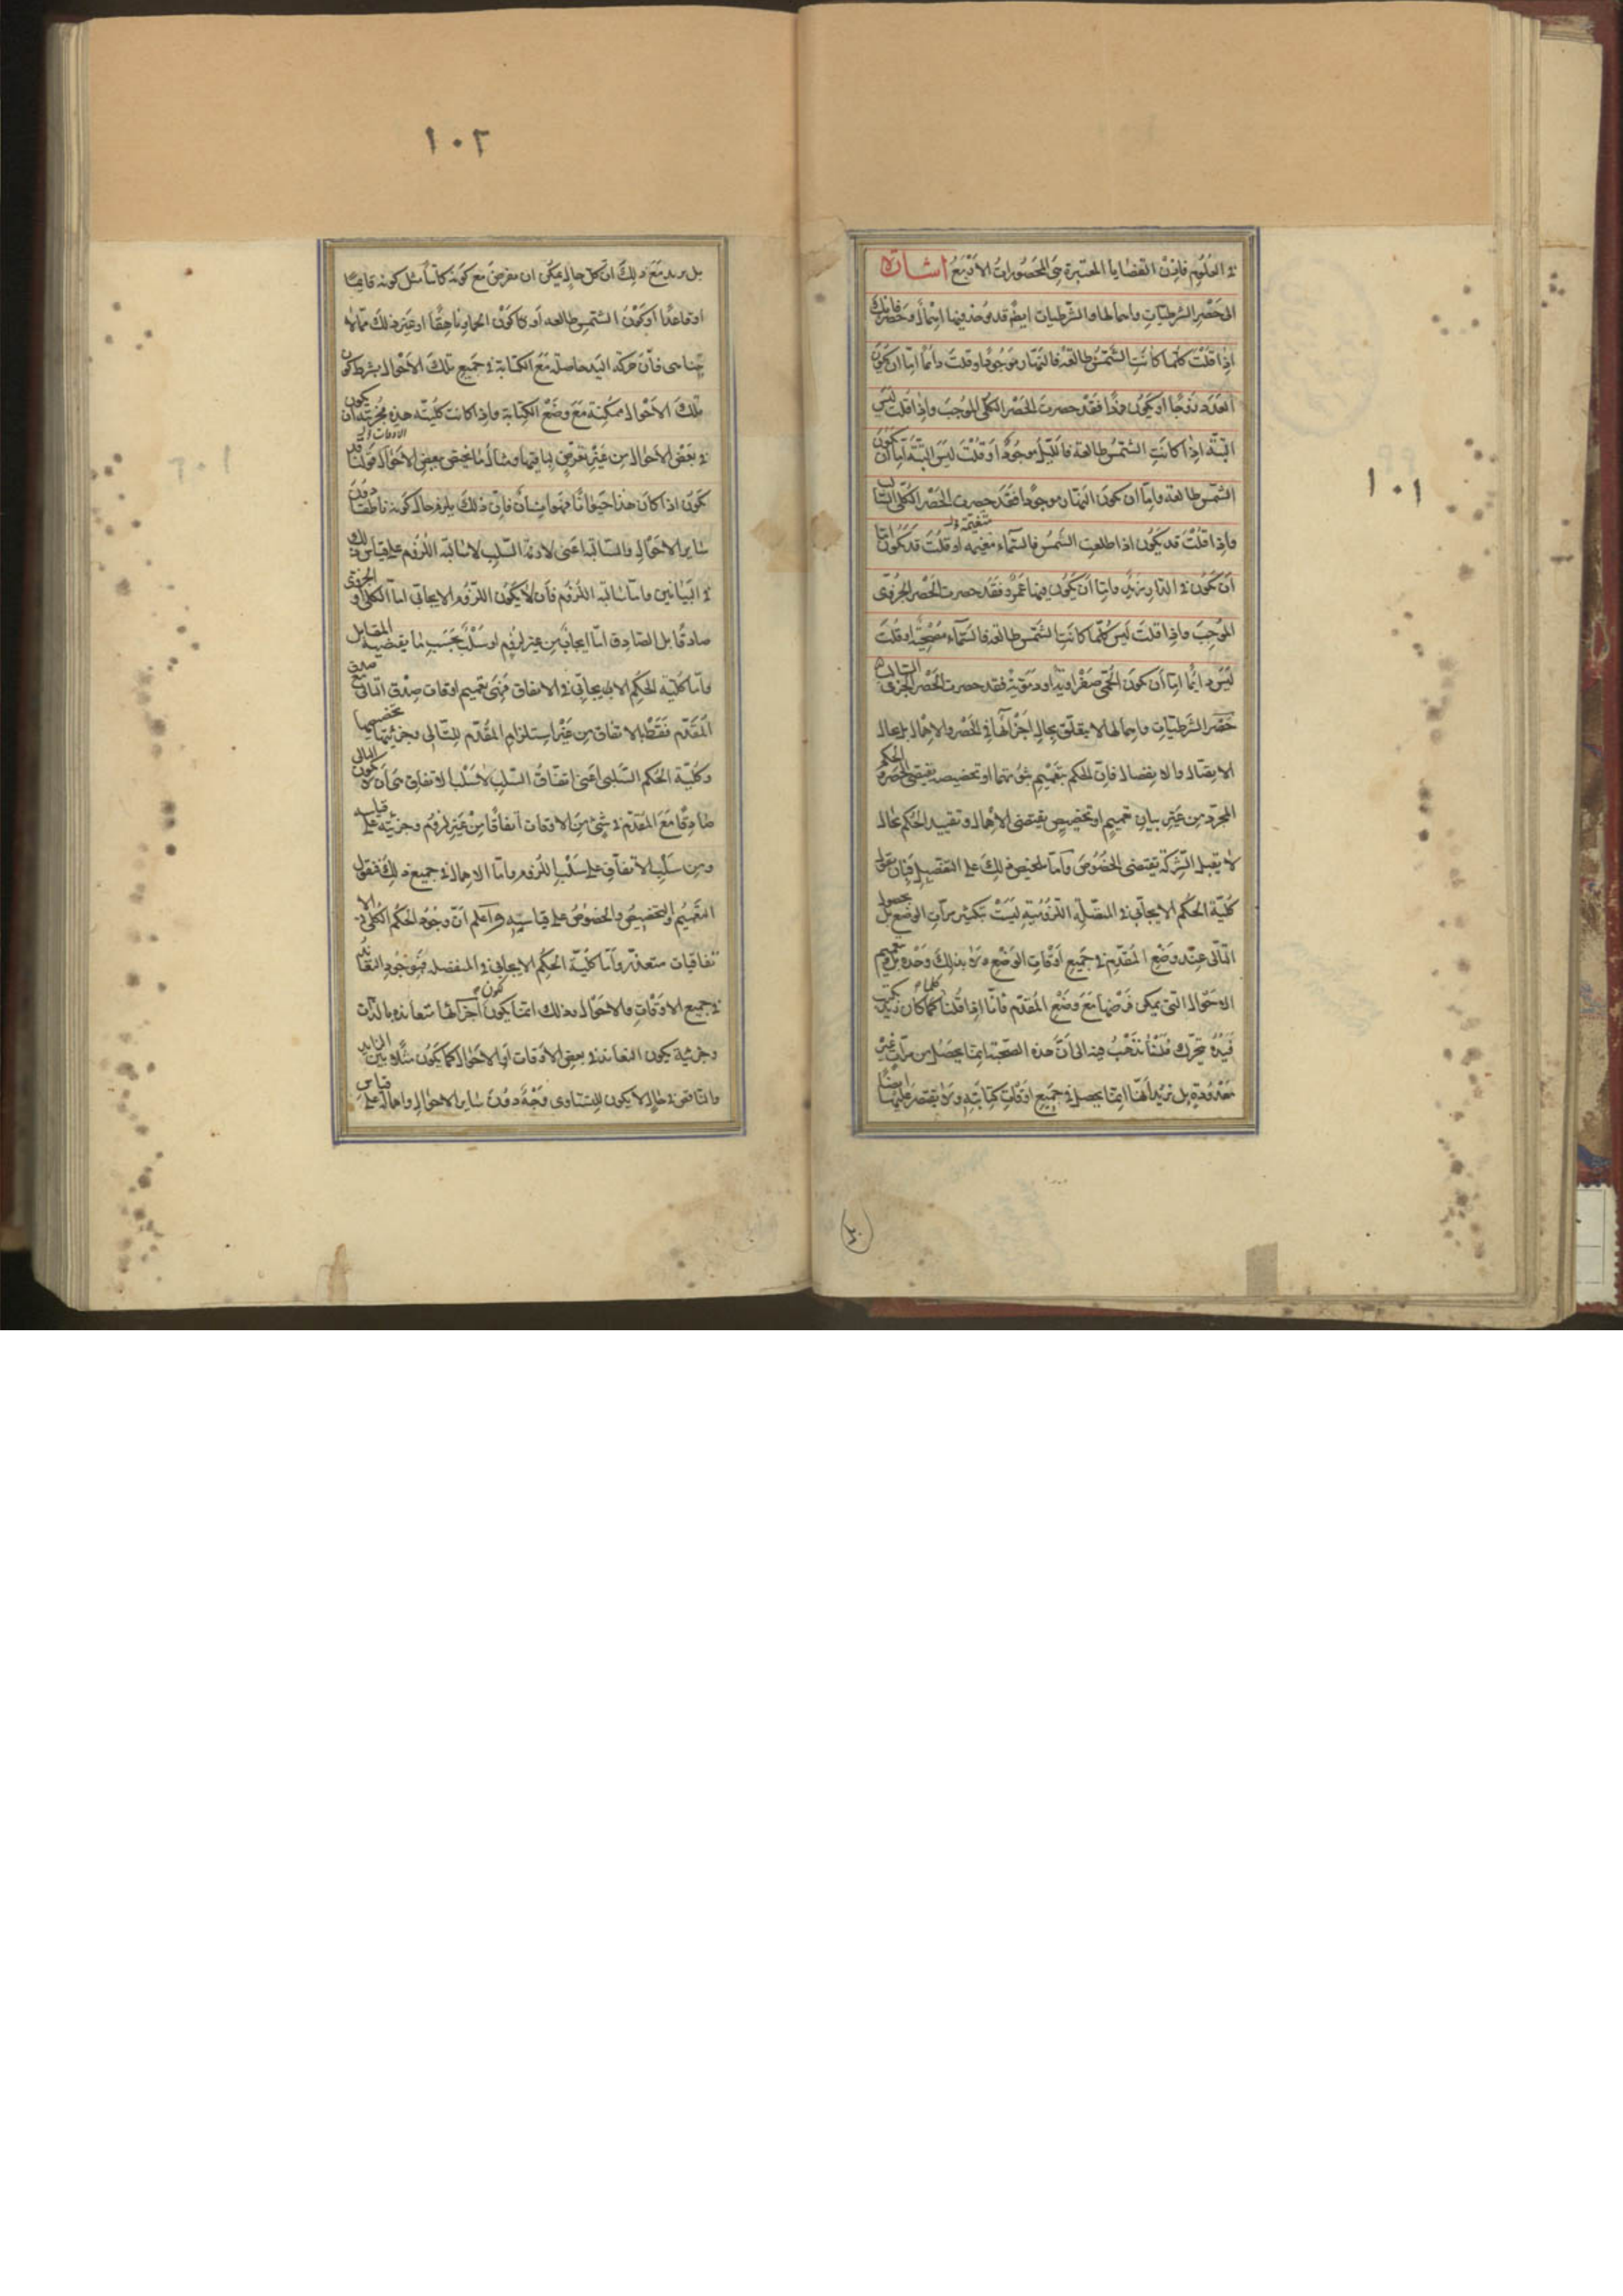 ١٠١
فى العلوم فاذن القضايا المعتبرة هى المحصورات الاربع اشارة
الى حصر الشرطيات واهمالها والشرطيات ايضا قد يوجد فيها اهمال وحصر فانك
اذا قلت كلما كانت الشمس طالعة فالنهار موجود او قلت دائما اما ان يكون
العدد زوجا او يكون فردا فقد حصرت الحصر الكلى الموجب واذا قلت ليس
البتة اذا كانت الشمس طالعة فالليل موجود او قلت ليس البتة اما ان يكون
الشمس طالعة واما ان يكون النهار موجودا فقد حصرت الحصر الكلى السالب
واذا قلت قد يكون اذا طلعت الشمس فالسماء متغيمة او قلت قد يكون اما
ان يكون فى الدار زيد واما ان يكون فيها عمرو فقد حصرت الحصر الجزئى
الموجب واذا قلت ليس كلما كانت الشمس طالعة فالسماء مصحية او قلت
ليس دائما اما ان يكون الحمى صفراوية او دموية فقد حصرت الحصر الجزئى السالب
حصر الشرطيات واهمالها لا يتعلق بحال اجزائها فى الحصر والاهمال بل بحال
الاتصال والانفصال فان الحكم بتعميم ثبوتهما او تخصيصه يقتضى الحصر والحكم
المجرد من غير بيان تعميم او تخصيص يقتضى الاهمال وتقييد الحكم بحال
لا يقبل الشركة يقتضى الخصوص واما تلخيص ذلك على التفصيل فبان نقول
كلية الحكم الايجابى فى المتصلة اللزومية ليست بتكثير مرات الوضع بل بحصول
التالى عند وضع المقدم فى جميع اوقات الوضع ولا بذلك وحده بل بتعميم
الاحوال التى يمكن فرضها مع وضع المقدم فانا اذا قلنا كلما كان زيد يكتب
فيده يتحرك فلسنا نذهب فيه الى ان هذه الصحبة انما يحصل من مرات غير
معدودة بل نريد انها انما يحصل فى جميع اوقات كتابته ولا نقتصر عليها ايضا
١٠٢
بل نريد مع ذلك ان كل حال يمكن ان يفرض مع كونه كاتبا مثل كونه قائما
او قاعدا او كون الشمس طالعة او كون الحمار ناهقا او غير ذلك مما لا
يتناهى فان حركة اليد حاصلة مع الكتابة فى جميع تلك الاحوال بشرط كون
تلك الاحوال ممكنة مع وضع الكتابة واذا كانت كلية هذه فجزئيته ان يكون
فى بعض الاحوال من غير تعرض لباقيها ومثال ما يختص ببعض الاحوال قولنا قد
يكون اذا كان هذا حيوانا فهو انسان فان ذلك يلزم حال كونه ناطقا دون
سائر الاحوال والسالبة اعنى لازمة السلب لا سالبة اللزوم على قياس ذلك
فى البيانين واما سالبة اللزوم فان لا يكون اللزوم الايجابى اما الكلى او الجزئى
صادقا بل الصادق اما ايجاب من غير لزوم او سلب بحسب ما يقتضيه المقابل
واما كلية الحكم الايجابى فى الاتفاق فهى تعميم اوقات صدق التالى مع صدق
المقدم فقط بالاتفاق من غير استلزام المقدم للتالى وجزئيتها تخصيصها
وكلية الحكم السلبى اعنى اتفاق السلب لا سلب الاتفاق هى ان لا يكون التالى
صادقا مع المقدم فى شئ من الاوقات اتفاقا من غير لزوم وجزئيته على قياسه
ومن سلب الاتفاق على سلب اللزوم واما الاهمال فى جميع ذلك فبترك
التعميم والتخصيص والخصوص على قياسه واعلم ان وجود الحكم الكلى فى الا
تفاقيات متعذر واما كلية الحكم الايجابى فى المنفصلة فهو وجود التعاند
فى جميع الاوقات والاحوال وذلك انما يكون لكون اجزائها متعاندة بالذات
وجزئية يكون التعاند فى بعض الاوقات او الاحوال كما يكون مثلا بين الزايد
والناقص فى حال لا يكون للتساوى وجه دون سائر الاحوال واهماله على قياس